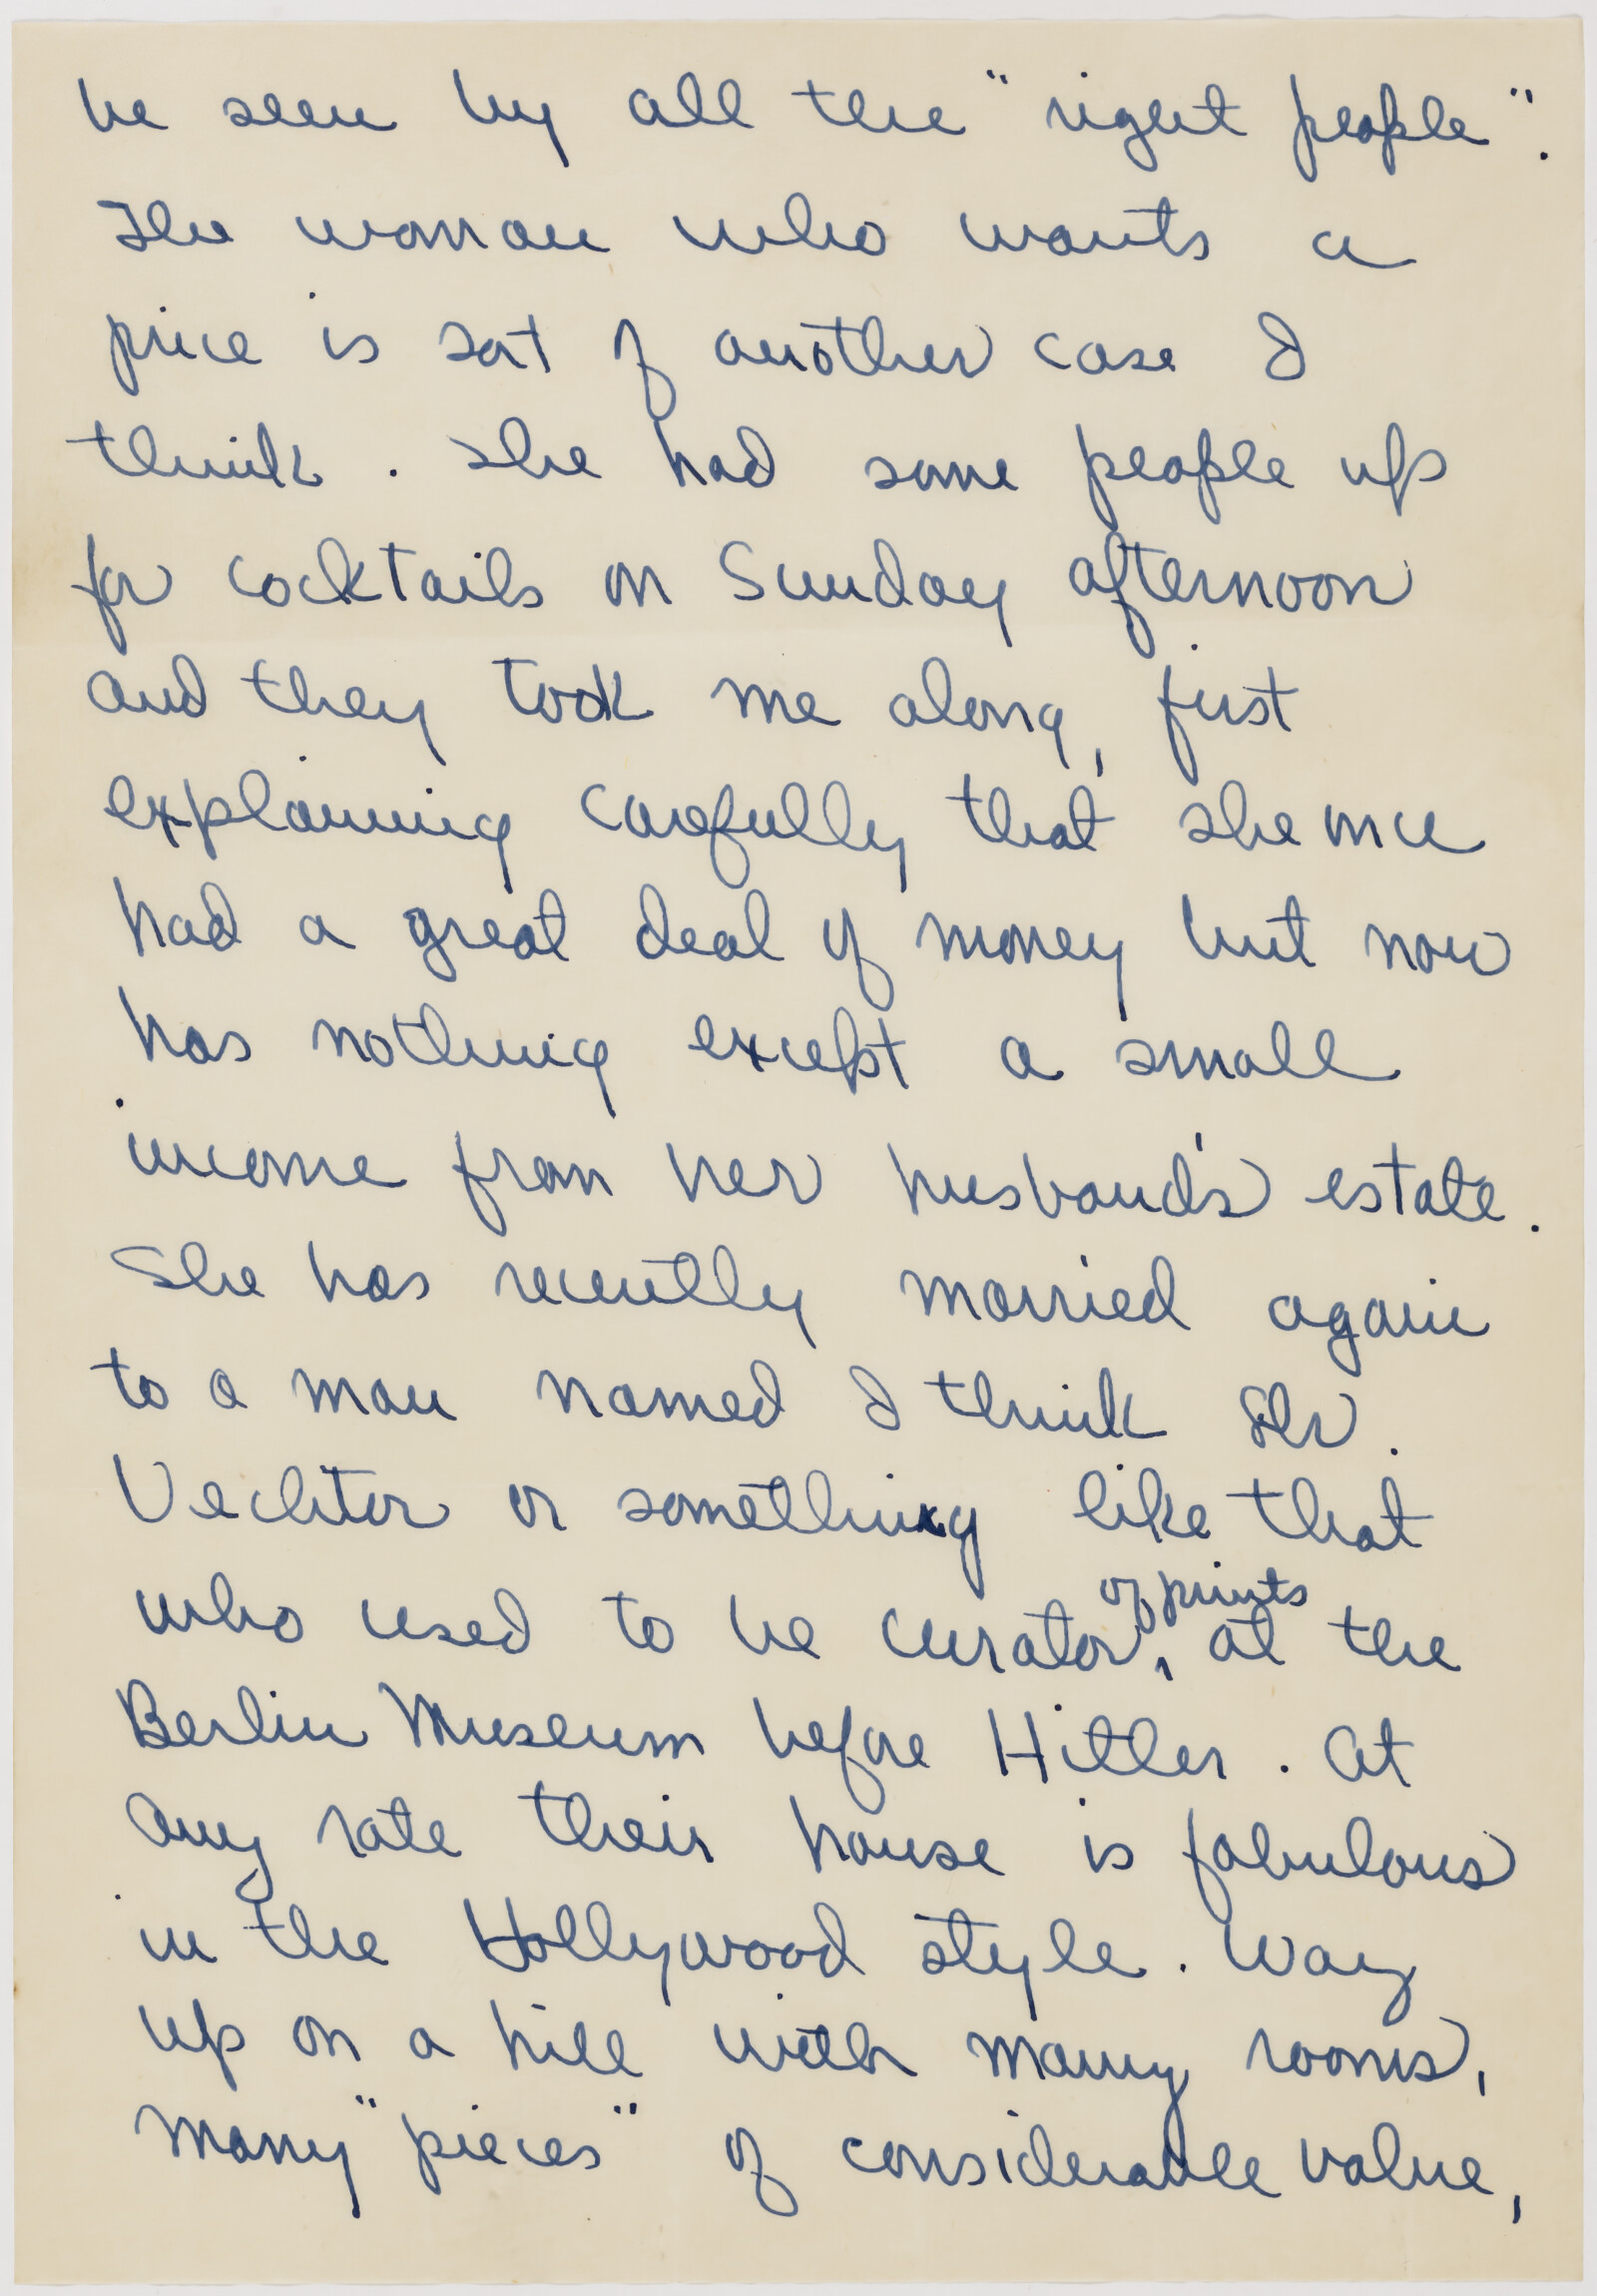 be seen by all the "right people".
The woman who wants a
price is sort of another case I
think. She had some people up
for cocktails on Sunday afternoon
and they took me along, first
explaining carefully that she once
had a great deal of money but now
has nothing except a small
income from her husband's estate.
She has recently married again
to a man named I think Dr.
Vechtor or something like that
of prints
who used to be curator, at the
Berlin Museum before Hitler. At
any rate their house is fabulous
in the Hollywood style. Way
up on a hill with many rooms,
many "pieces" of considerable value,